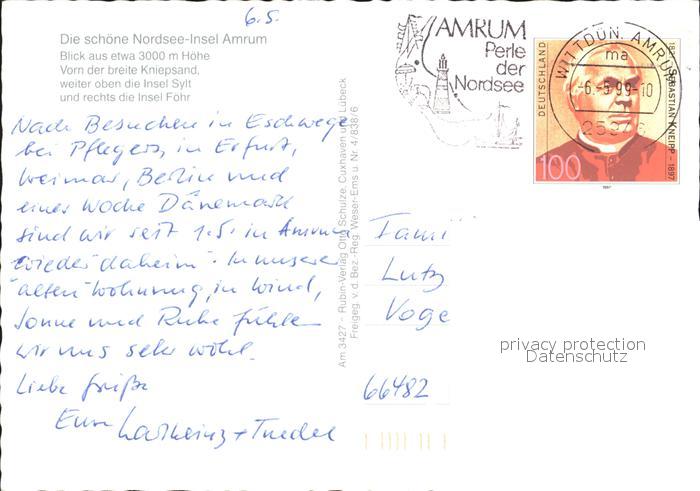 6.5.
Die schöne Nordsee-Insel Amrum
Blick aus etwa 3000 m Höhe
Vorn der breite Kniepsand,
weiter oben die Insel Sylt
und rechts die Insel Föhr
Nach Besuchen in Eschwege
bei Pflegers, in Erfurt,
Weimar, Berlin und
einer Woche Dänemark
sind wir seit 1.5. in Amrum
"wieder daheim". In unserer
"alten" Wohnung, in Wind,
Sonne und Ruhe fühlen
wir uns sehr wohl.
Liebe Grüße
Eure Karlheinz +
Am 3427 - Rubin-Verlag Otto Schulze, Cuxhaven und Lübeck
Freigeg. v. d. Bez.-Reg. Weser-Ems u. Nr. 4/838/6
AMRUM
Perle
der
Nordsee
WITTDÜN, AMRUM
ma
-6.-5.99-10
DEUTSCHLAND
SEBASTIAN KNEIPP - 1897
100
1997
Fami
Lutz
Voge
66482
privacy protection
Datenschutz